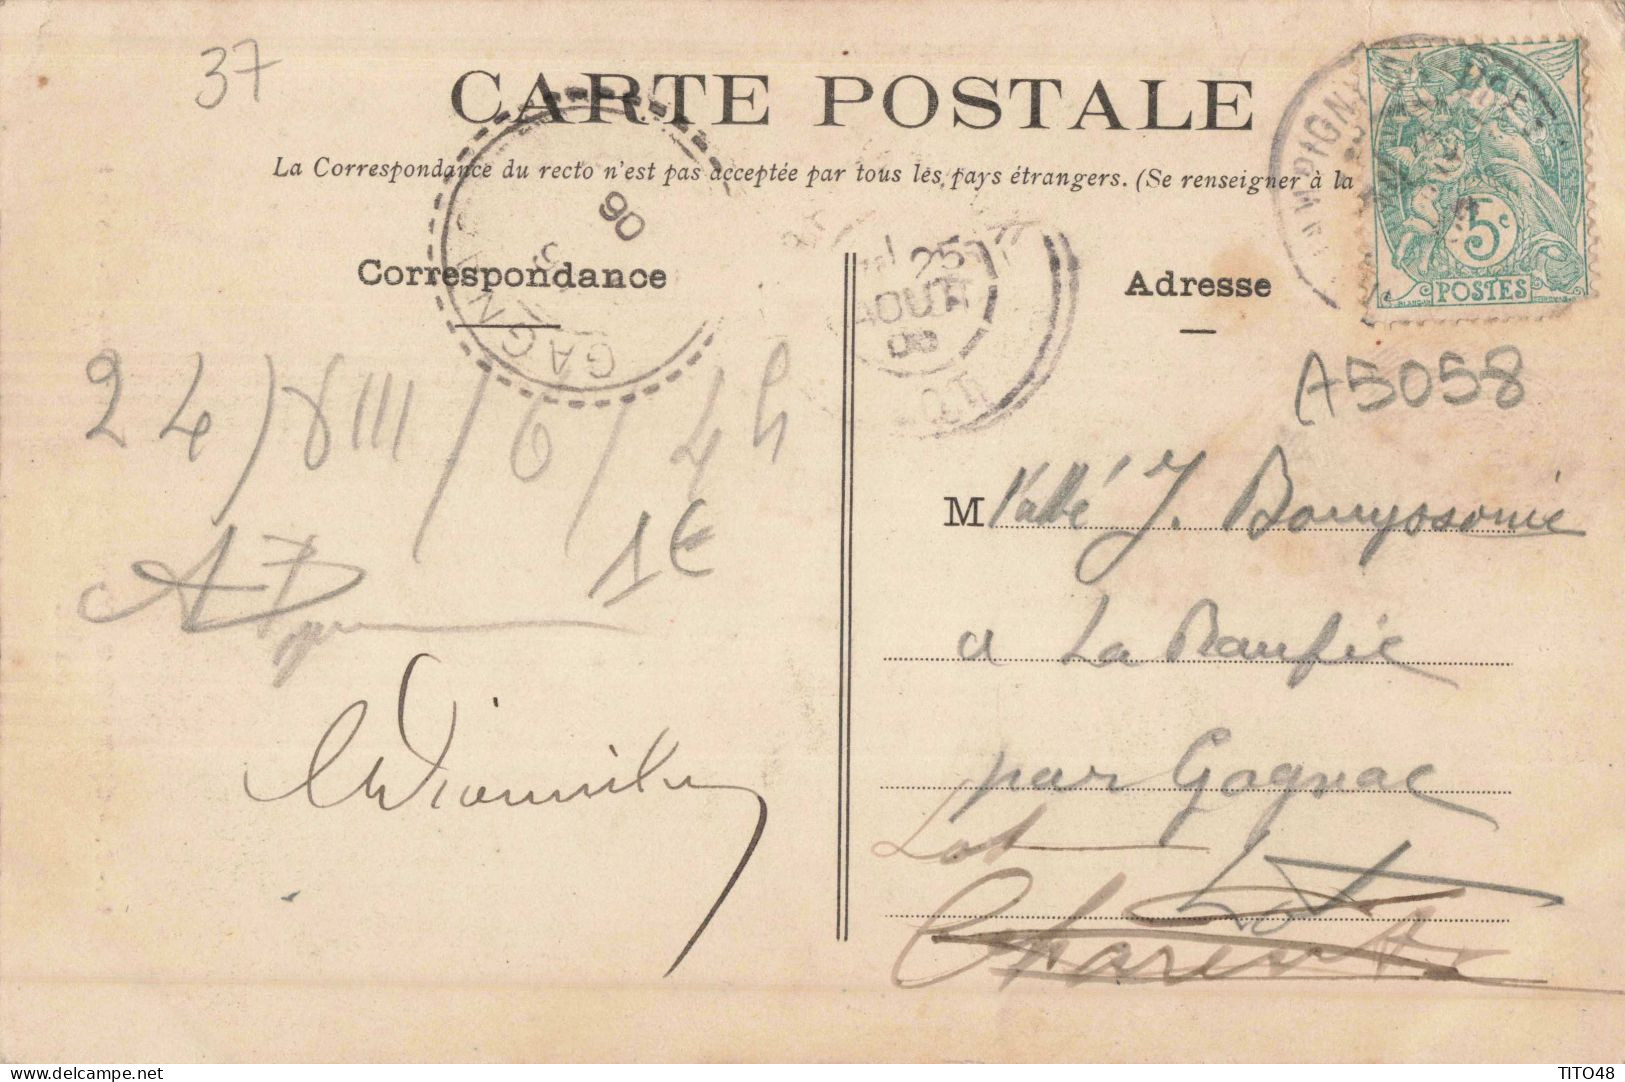 37
CARTE POSTALE
La Correspondance du recto n'est pas acceptée par tous les pays étrangers. (Se renseigner à la
Correspondance
Adresse
GAGNAC
06
25
AOUT
06
5c
POSTES
A5058
24/VIII/6/4h
1€
M l'abbé J. Bouyssonie
a La Raufie
par Gagnac
Lot
Lot
Charente
TITO48